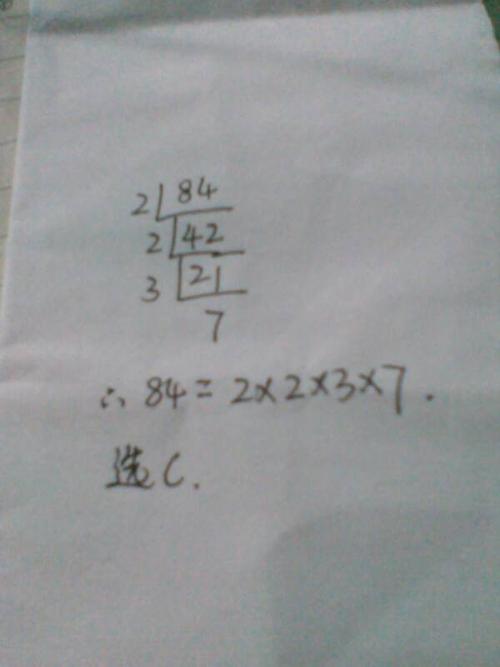 2 84
2 42
3 21
7
∴ 84 = 2×2×3×7.
选C.